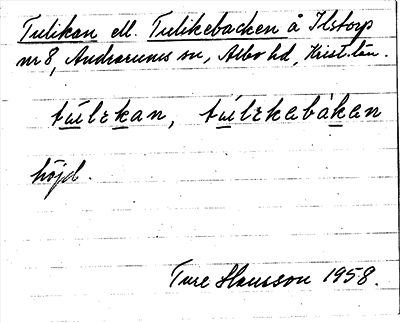 Tulikan ell. Tulikebacken å Ilstorp
nr 8, Andrarums sn, Albo hd, Krist. län.
túlɛkan, túlɛkabàkan
höjd.
Ture Hansson 1958.